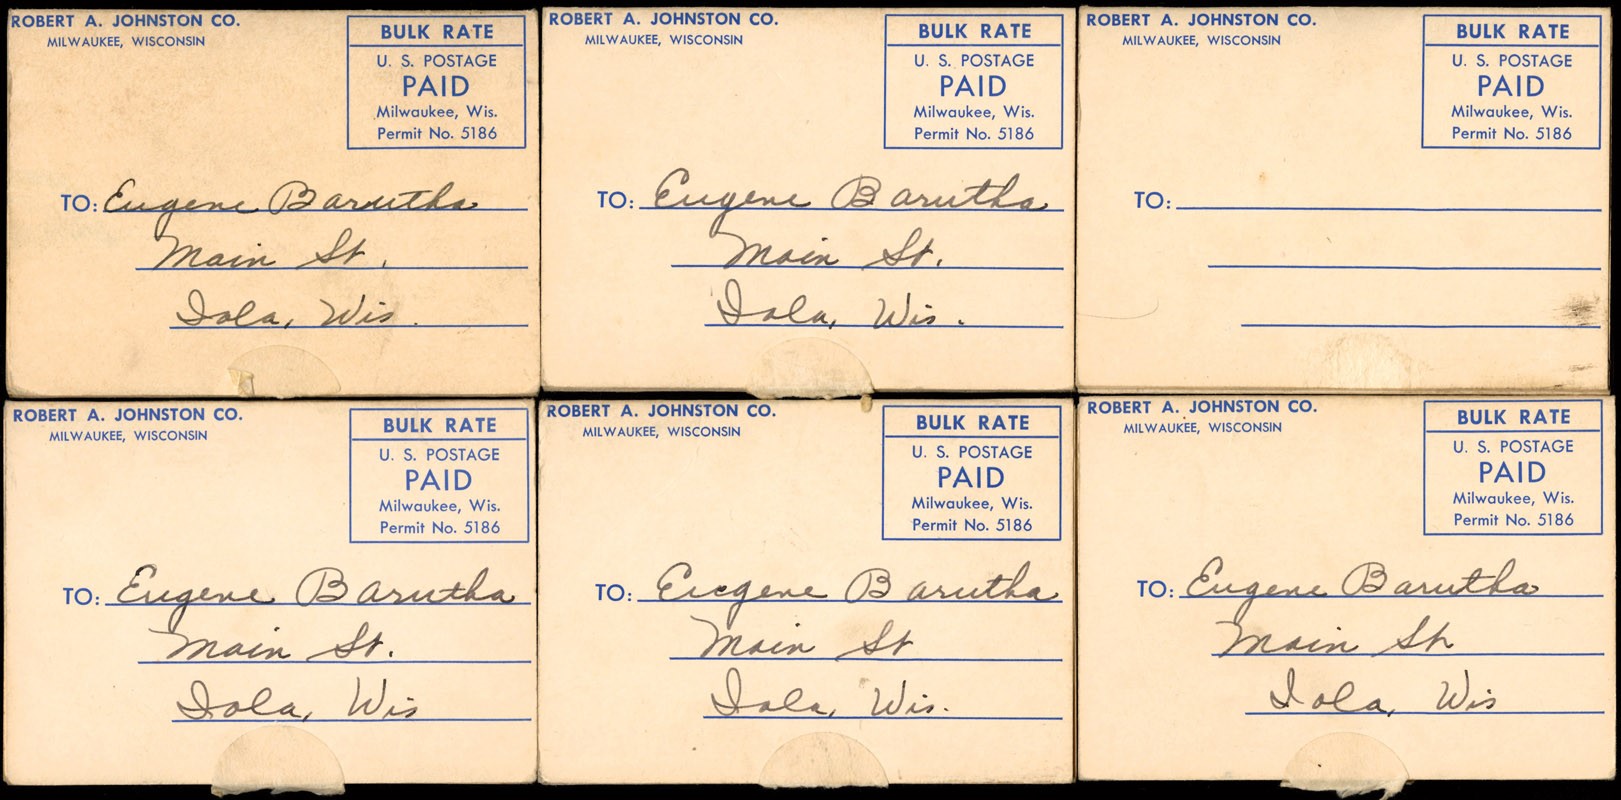 ROBERT A. JOHNSTON CO.
MILWAUKEE, WISCONSIN
BULK RATE
U. S. POSTAGE
PAID
Milwaukee, Wis.
Permit No. 5186
TO: Eugene Barutha
Main St.
Iola, Wis.
ROBERT A. JOHNSTON CO.
MILWAUKEE, WISCONSIN
BULK RATE
U. S. POSTAGE
PAID
Milwaukee, Wis.
Permit No. 5186
TO: Eugene Barutha
Main St.
Iola, Wis.
ROBERT A. JOHNSTON CO.
MILWAUKEE, WISCONSIN
BULK RATE
U. S. POSTAGE
PAID
Milwaukee, Wis.
Permit No. 5186
TO:
ROBERT A. JOHNSTON CO.
MILWAUKEE, WISCONSIN
BULK RATE
U. S. POSTAGE
PAID
Milwaukee, Wis.
Permit No. 5186
TO: Eugene Barutha
Main St.
Iola, Wis
ROBERT A. JOHNSTON CO.
MILWAUKEE, WISCONSIN
BULK RATE
U. S. POSTAGE
PAID
Milwaukee, Wis.
Permit No. 5186
TO: Eugene Barutha
Main St
Iola, Wis.
ROBERT A. JOHNSTON CO.
MILWAUKEE, WISCONSIN
BULK RATE
U. S. POSTAGE
PAID
Milwaukee, Wis.
Permit No. 5186
TO: Eugene Barutha
Main St
Iola, Wis